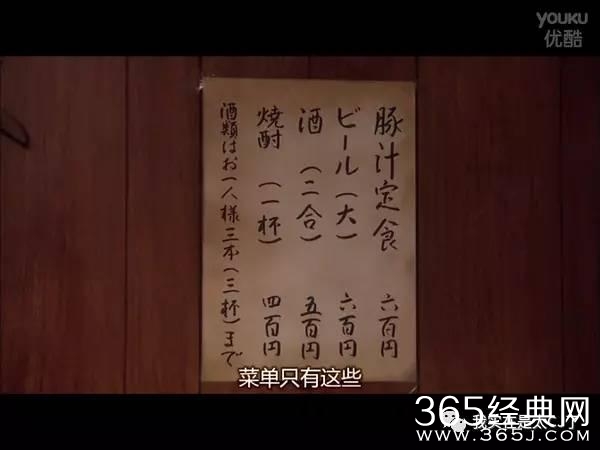 YOUKU
优酷
豚汁定食 六百円
ビール(大) 六百円
酒(二合) 五百円
焼酎(一杯) 四百円
酒類はお一人様三本(三杯)まで
菜单只有这些
365经典网
WWW.365J.COM